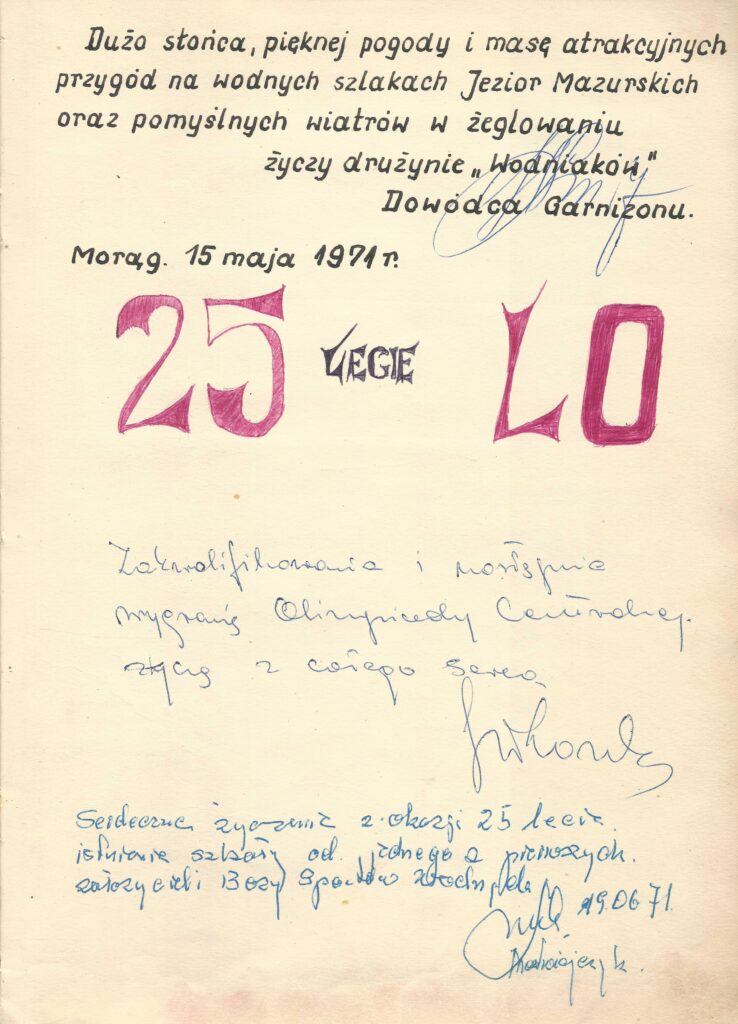 Dużo słońca, pięknej pogody i masę atrakcyjnych
przygód na wodnych szlakach Jezior Mazurskich
oraz pomyślnych wiatrów w żeglowaniu
życzy drużynie „Wodniaków"
Dowódca Garnizonu.
Morąg. 15 maja 1971 r.
25 LECIE LO
Zakwalifikowania i następnie
wygranie Olimpiady Centralnej.
życzę z całego serca
Serdeczne życzenia z okazji 25 lecia
istnienia szkoły od jednego z pierwszych
założycieli Bazy Sportów Wodnych
19.06 71.